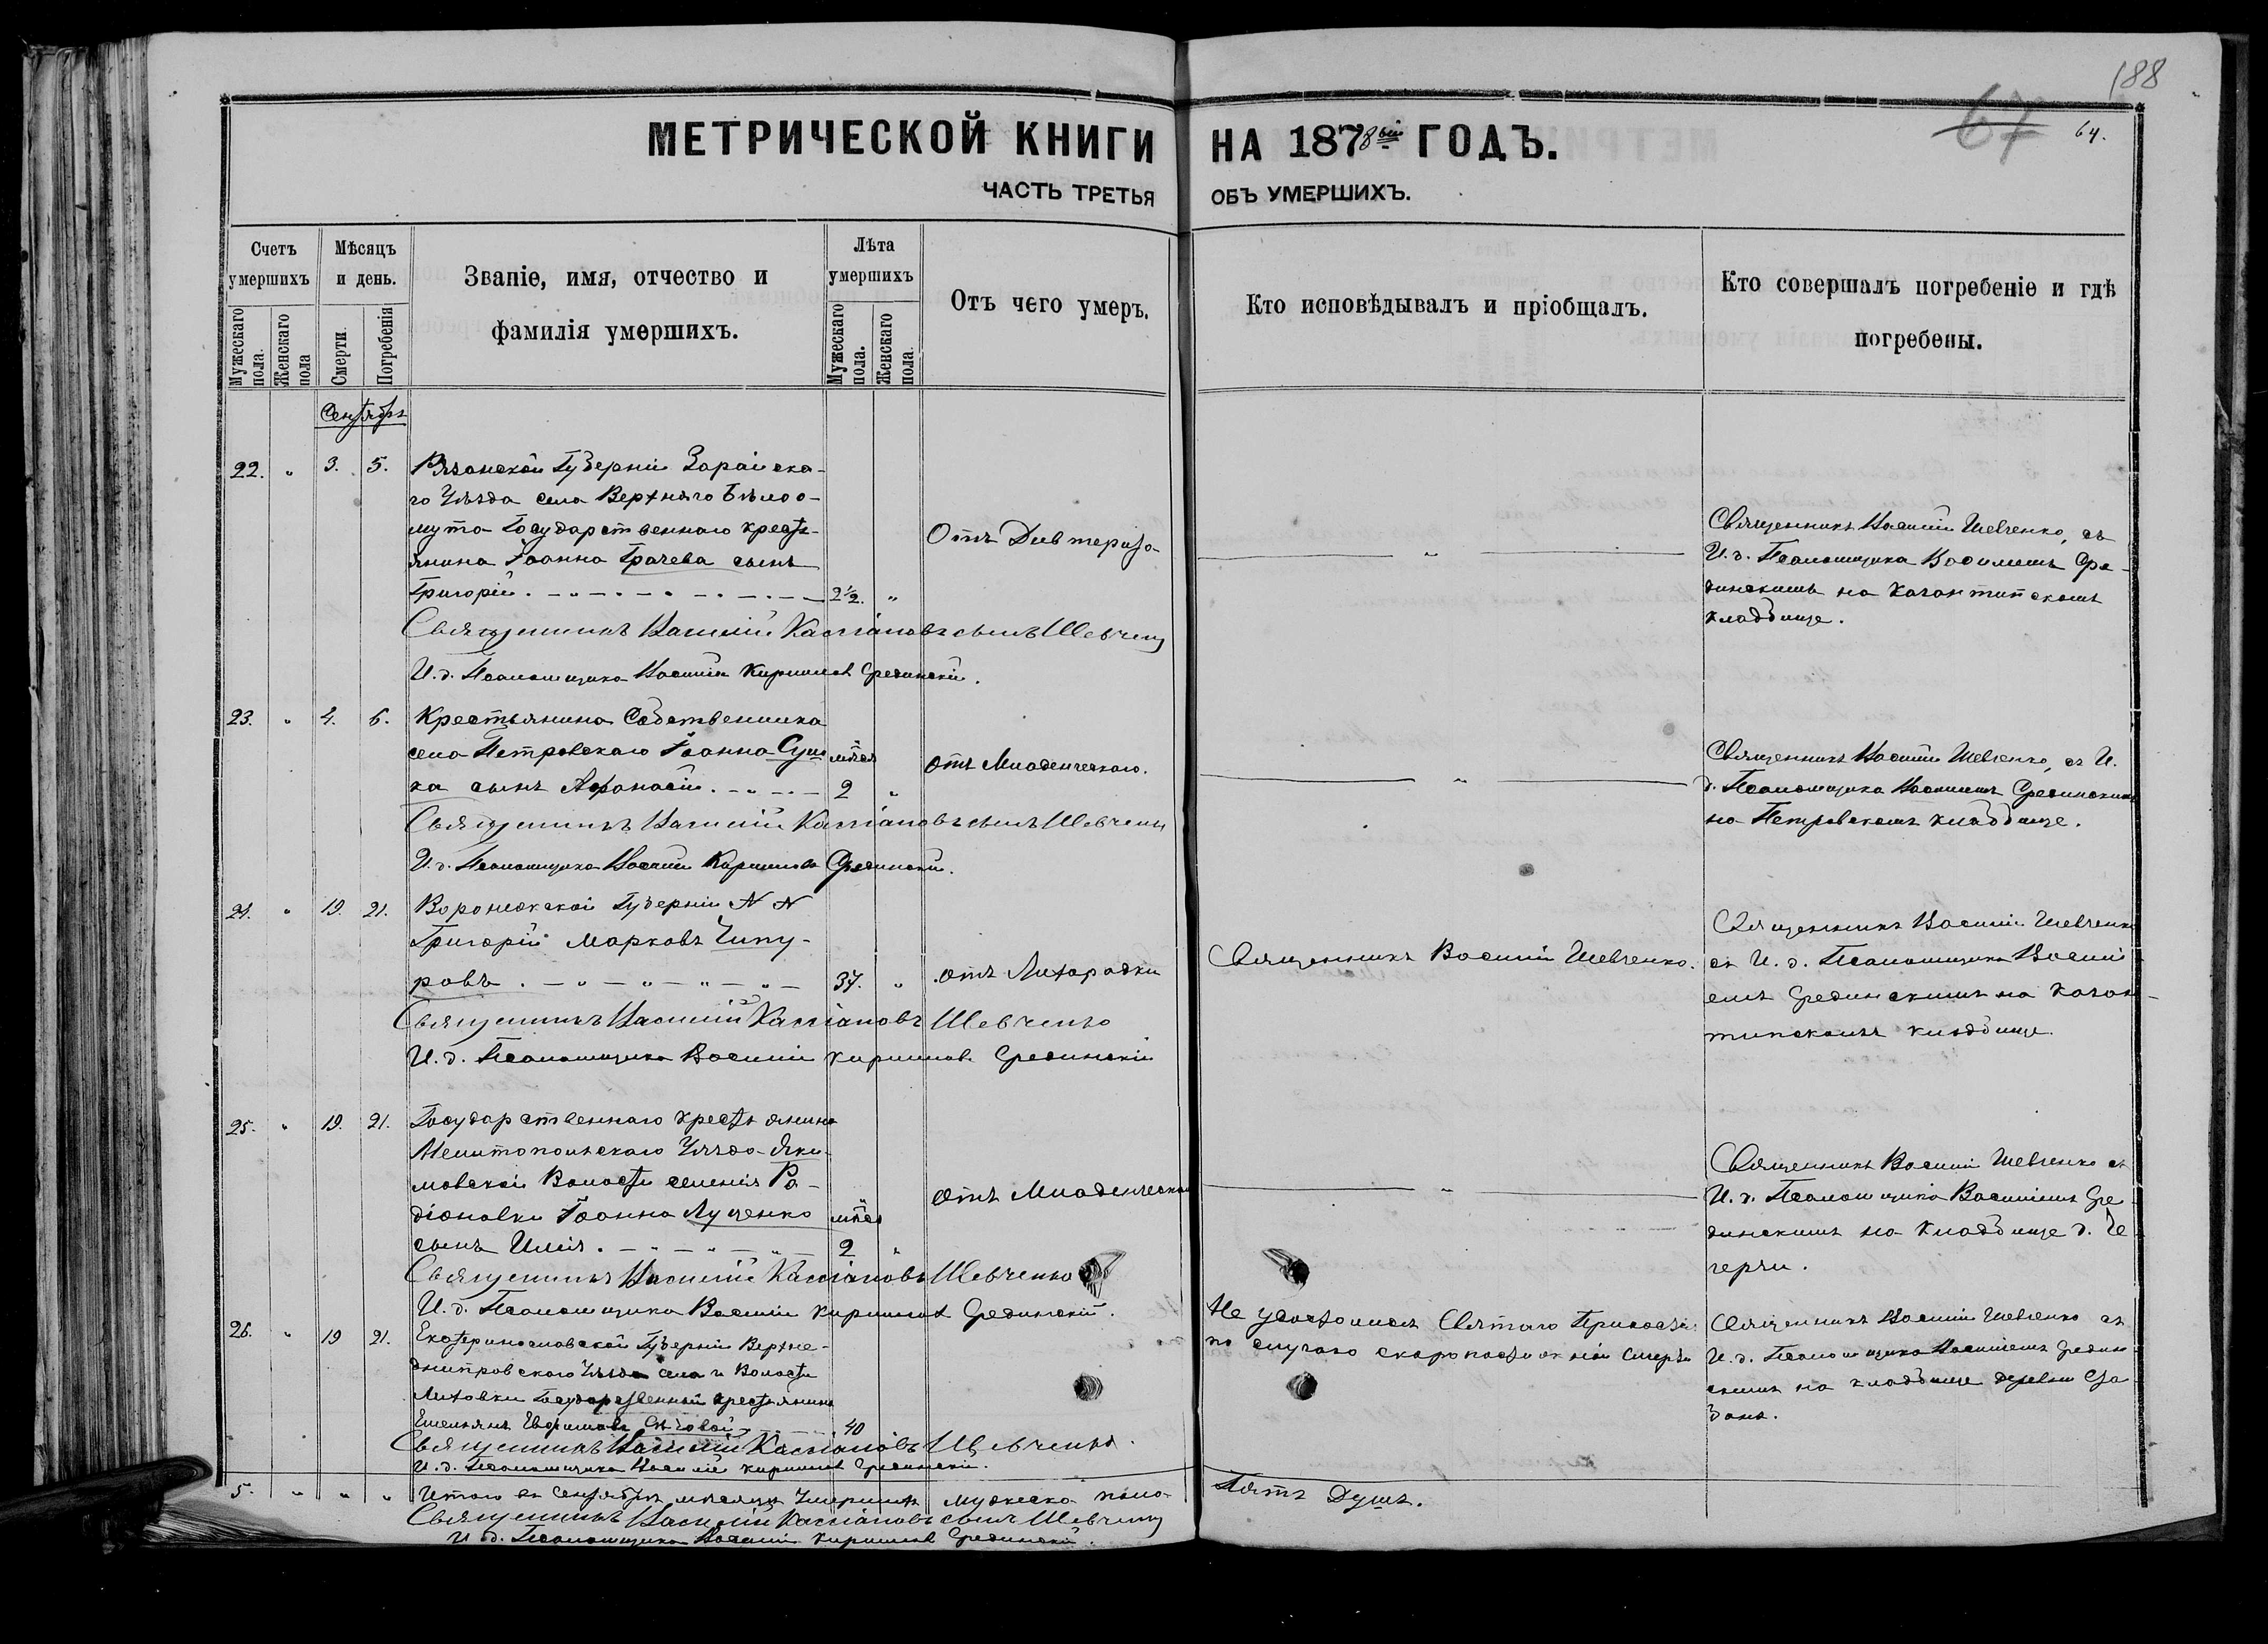 188
67
64.
МЕТРИЧЕСКОЙ КНИГИ НА 1878ый ГОДЪ.
ЧАСТЬ ТРЕТЬЯ ОБЪ УМЕРШИХЪ.
Счетъ умершихъ
Мужескаго пола.
Женскаго пола
Мѣсяцъ и день.
Смерти.
Погребенія
Званіе, имя, отчество и
фамилія умершихъ.
Лѣта умершихъ
Мужескаго пола.
Женскаго пола.
Отъ чего умеръ.
Кто исповѣдывалъ и пріобщалъ.
Кто совершалъ погребеніе и гдѣ
погребены.
Сентябрь
22. " 3. 5. Рязанской Губерніи Зарайска-
го Уѣзда села Верхняго Бѣлоо-
мута Государственнаго кресть-
янина Іоанна Грачева сынъ
Григорій. 2½. "
Отъ Дивтерита
Священникъ Василій Шевченко, съ
И. д. Псаломщика Василіемъ Сре-
динскимъ на Казантипскомъ
кладбище.
Священникъ Василій Кассіановъ сынъ Шевченко
И. д. Псаломщика Василій Кирилловъ Срединскій.
23. " 4. 6. Крестьянина Собственника
села Петровскаго Іоанна
ка сынъ Афанасій. 2 "
отъ Младенческаго.
Священникъ Василій Шевченко, съ И.
д. Псаломщика Василіемъ Срединскимъ
на Петровскомъ кладбище.
Священникъ Василій Кассіановъ сынъ Шевченко
И. д. Псаломщика Василій Кириллова Срединскій.
24. " 19. 21. Воронежской Губерніи N N
Григорій Марковъ Чипу-
ровъ. 37. "
отъ Лихорадки
Священникъ Василій Шевченко.
Священникъ Василій Шевченко
съ И. д. Псаломщика Василі-
емъ Срединскимъ на Казан-
типскомъ кладбище.
Священникъ Василій Кассіановъ Шевченко
И. д. Псаломщика Василій Кирилловъ Срединскій
25. " 19. 21. Государственнаго крестьянина
Мелитопольскаго Уѣзда Яки-
мовской Волости селенія Ро-
діоновки Іоанна Луценко
сынъ Илія. 2 "
отъ Младенческаго
Священникъ Василій Шевченко съ
И. д. Псаломщика Василіемъ Сре-
динскимъ на кладбище д. Че-
герчи.
Священникъ Василій Кассіановъ Шевченко
И. д. Псаломщика Василій Кирилловъ Срединскій.
26. " 19 21. Екатеринославской Губерніи Верхне-
днипровскаго Уѣзда села и Волости
Лиховки Государственный крестьянинъ
Емельянъ Евфимовъ 40
Не удостоился Святаго Причастія
по случаю скоропостижной смерти
Священникъ Василій Шевченко съ
И. д. Псаломщика Василіемъ Средин-
скимъ на кладбище деревни
Священникъ Василій Кассіановъ Шевченко.
И. д. Псаломщика Василій Кирилловъ Срединскій.
5. " " " Итого въ Сентябрѣ мѣсяцѣ Умершихъ мужеска пола
Пять Душъ.
Священникъ Василій Кассіановъ сынъ Шевченко
И. д. Псаломщика Василій Кирилловъ Срединскій.